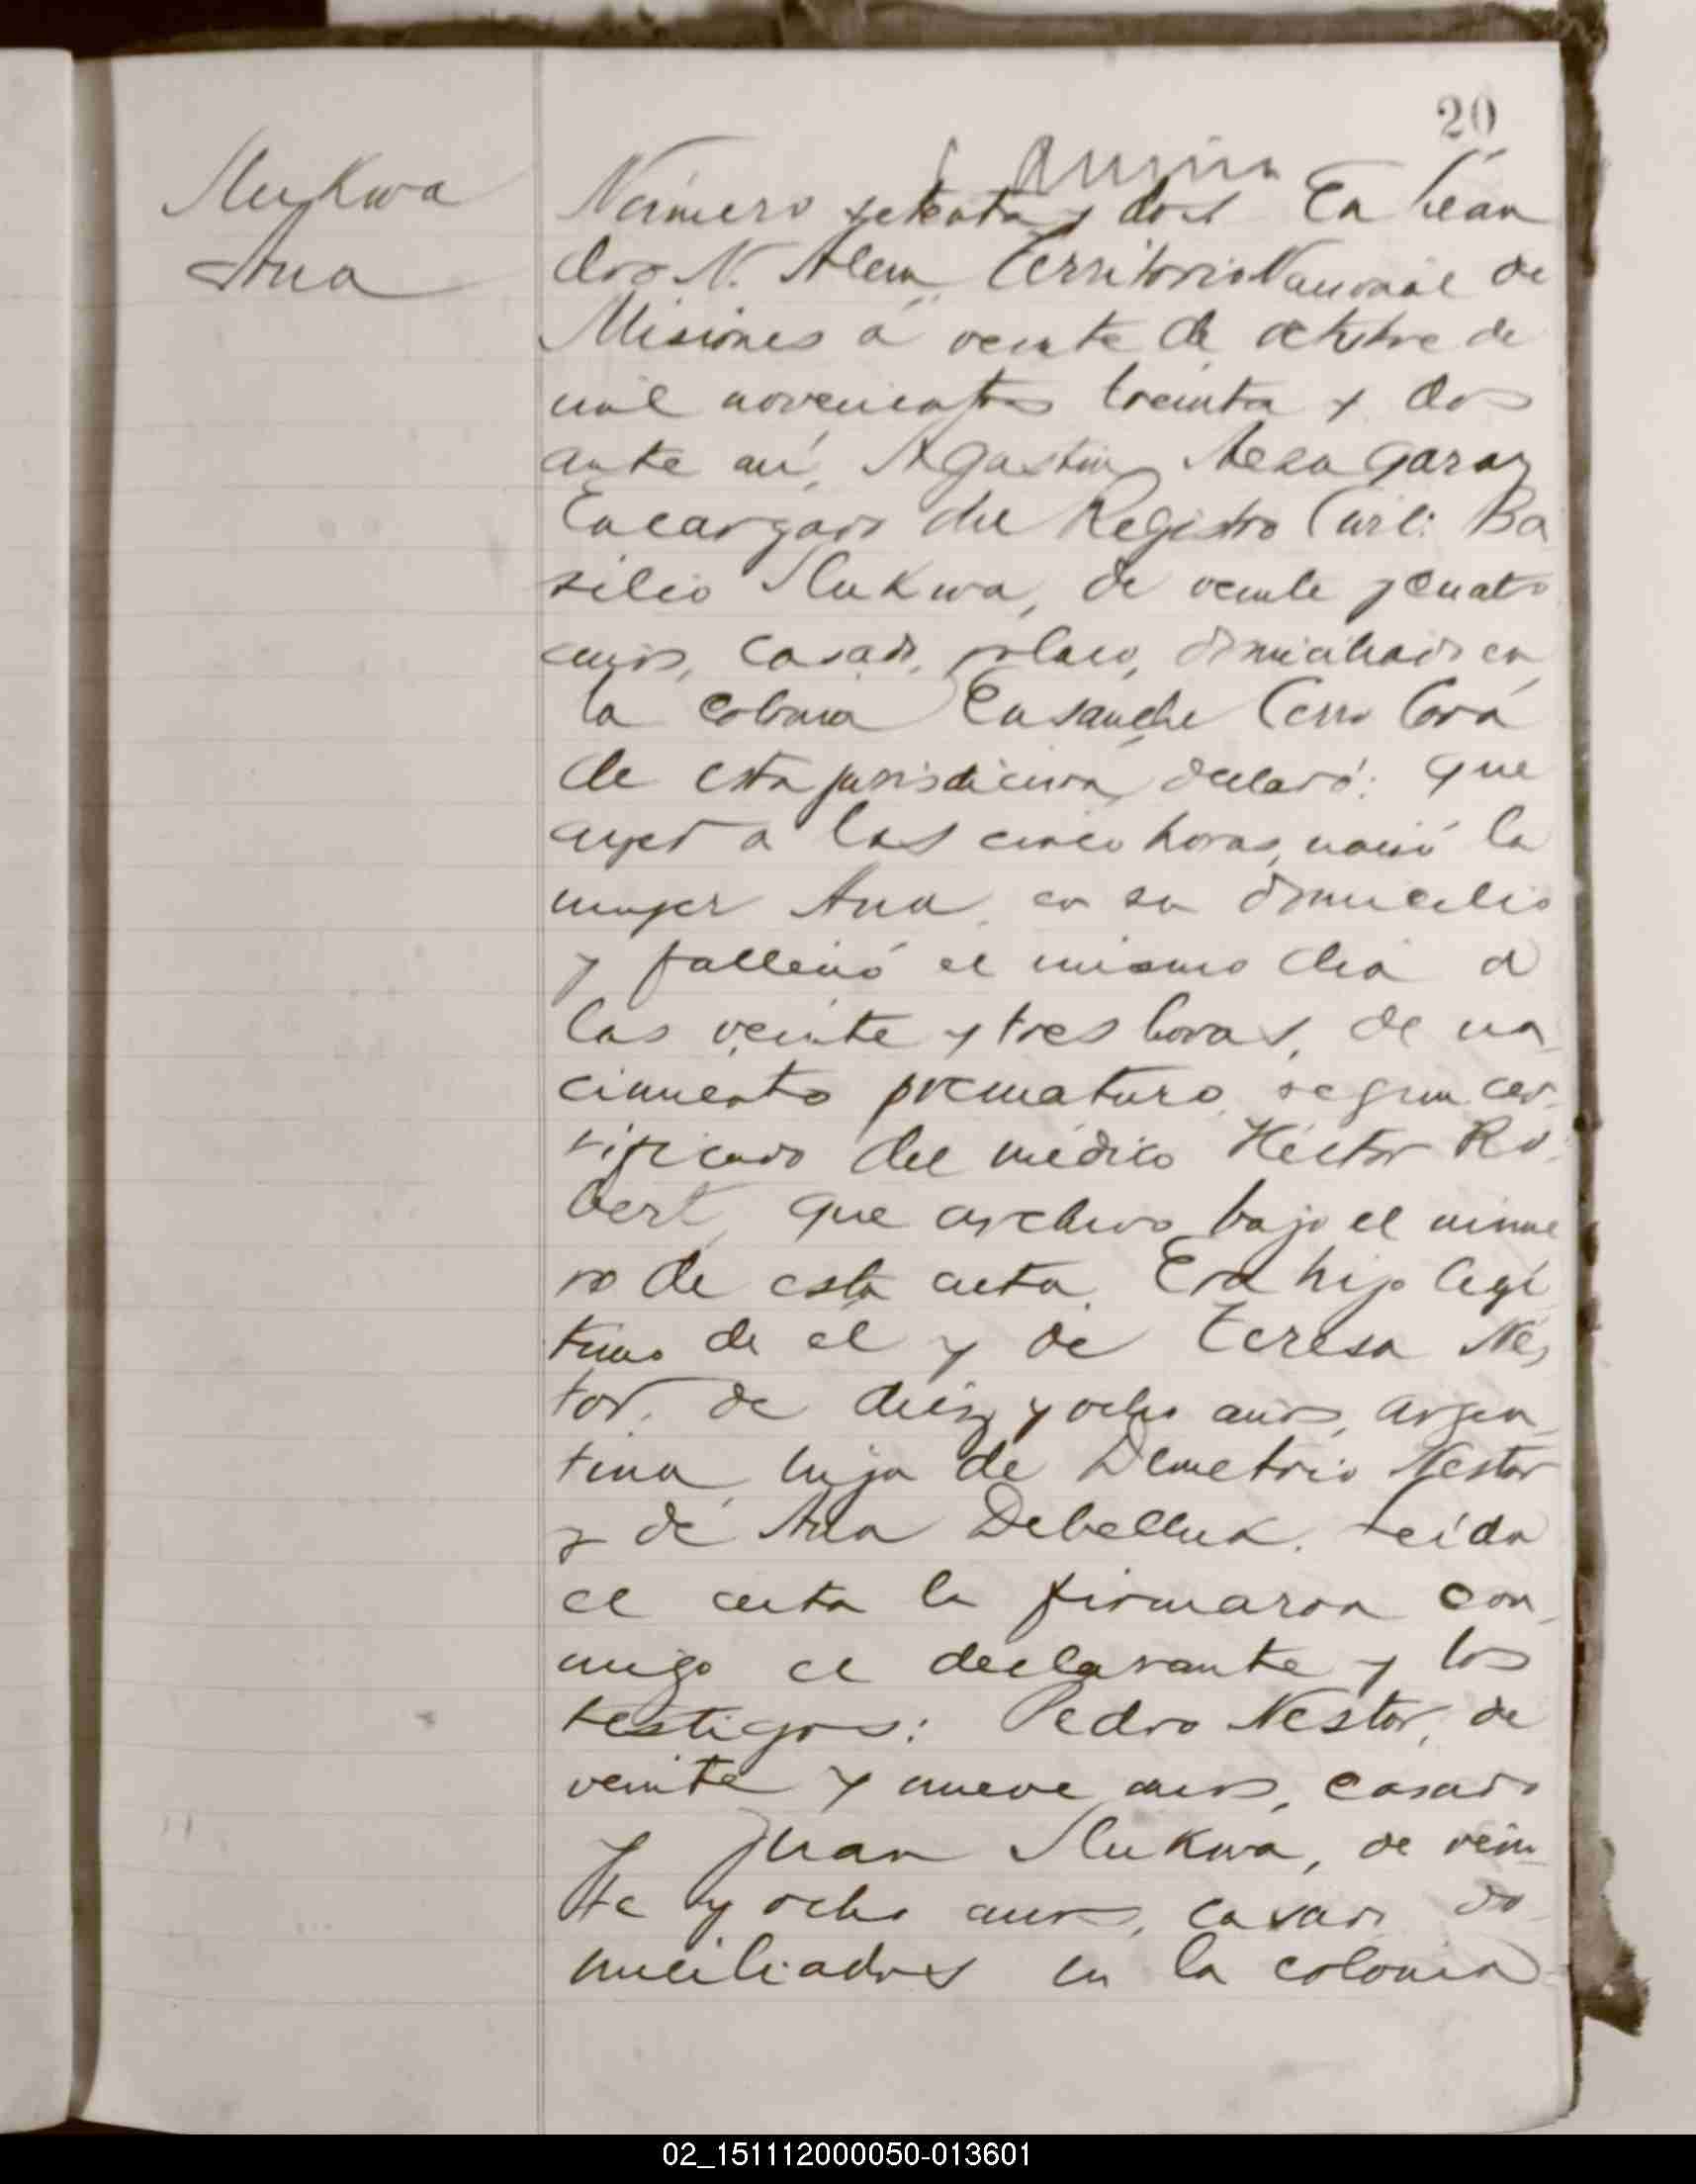 20
Slukwa
Ana
Número setenta y dos En Lean
dro N. Alem Territorio Nacional de
Misiones á veinte de octubre de
mil novecientos treinta y dos
ante mí, Agustin Garay
Encargado del Registro Civil: Ba
silio Slukwa, de veinte y cuatro
años, casado, polaco, domiciliado en
la colonia Ensanche Cerro Corá
de esta jurisdiccion, declaró: que
ayer a las cinco horas, nació la
mujer Ana, en su domicilio
y falleció el mismo dia a
las veinte y tres horas, de na
cimiento prematuro segun cer-
tificado del médico Héctor Ro-
bert, que archivo bajo el núme
ro de esta acta. Era hijo legí
timo de el y de Teresa Nes
tor, de diez y ocho años, argen
tina hija de Demetrio Nestor
y de Ana Debelluk. Leida
el acta la firmaron con
migo el declarante y los
testigos: Pedro Nestor, de
veinte y nueve años, casado
y Juan Slukwa, de vein
te y ocho años, casado do
miciliados en la colonia
02_151112000050-013601